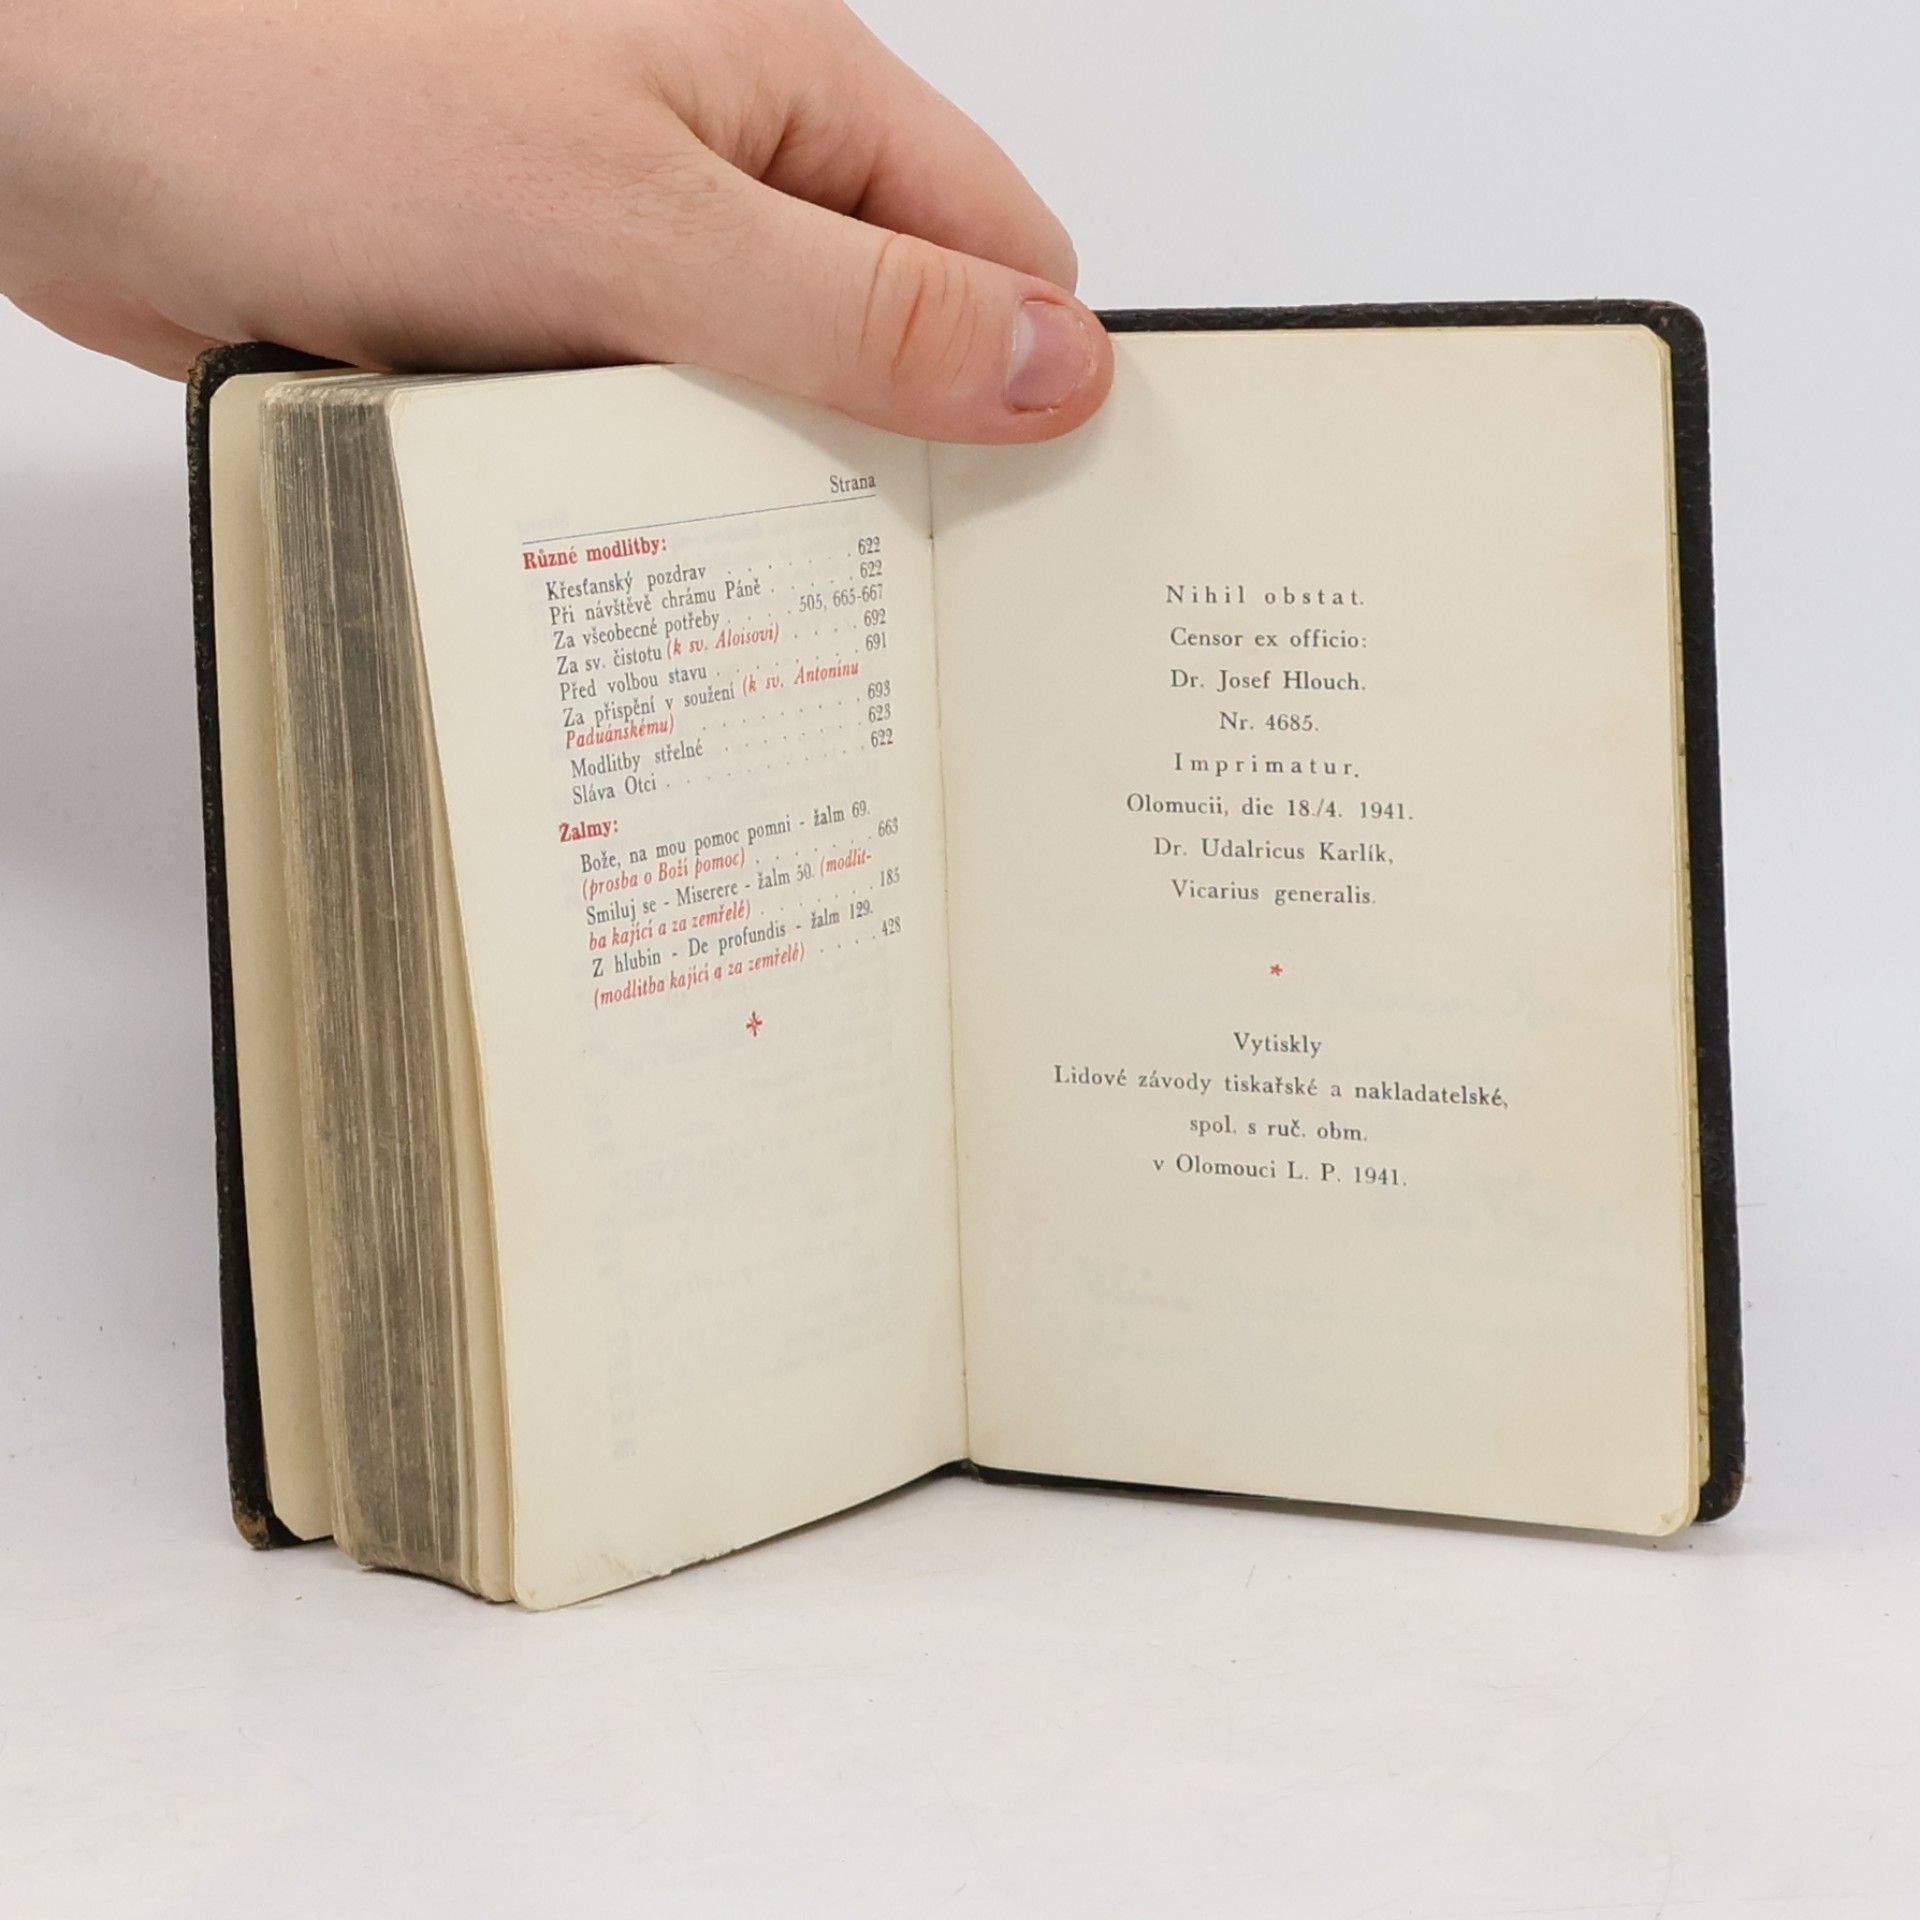 Strana
Různé modlitby:
Křesťanský pozdrav . . . . . . . 622
Při návštěvě chrámu Páně . . . . . 622
Za všeobecné potřeby . . . . 505, 665-667
Za sv. čistotu (k sv. Aloisovi) . . . . 692
Před volbou stavu . . . . . . . . 691
Za přispění v soužení (k sv. Antonínu
Paduánskému) . . . . . . . . . 693
Modlitby střelné . . . . . . . . 623
Sláva Otci . . . . . . . . . . 622
Žalmy:
Bože, na mou pomoc pomni - žalm 69.
(prosba o Boží pomoc) . . . . . . . 663
Smiluj se - Miserere - žalm 50. (modlit-
ba kající a za zemřelé) . . . . . . . 185
Z hlubin - De profundis - žalm 129.
(modlitba kající a za zemřelé) . . . . 428
Nihil obstat.
Censor ex officio:
Dr. Josef Hlouch.
Nr. 4685.
Imprimatur.
Olomucii, die 18./4. 1941.
Dr. Udalricus Karlík,
Vicarius generalis.
*
Vytiskly
Lidové závody tiskařské a nakladatelské,
spol. s ruč. obm.
v Olomouci L. P. 1941.